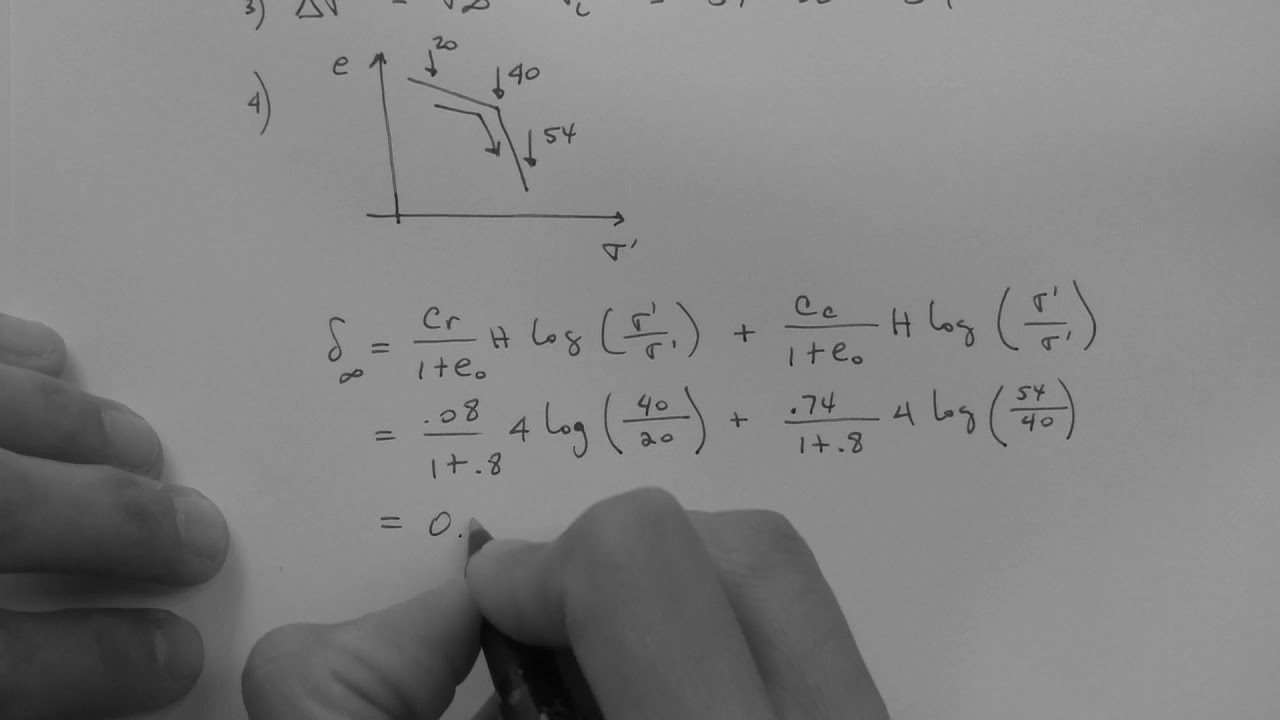 3)
4)
e
20
40
54
σ'
δ∞ = Cr/(1+e₀) H log (σ'/σ') + Cc/(1+e₀) H log (σ'/σ')
= .08/(1+.8) 4 log (40/20) + .74/(1+.8) 4 log (54/40)
= 0.